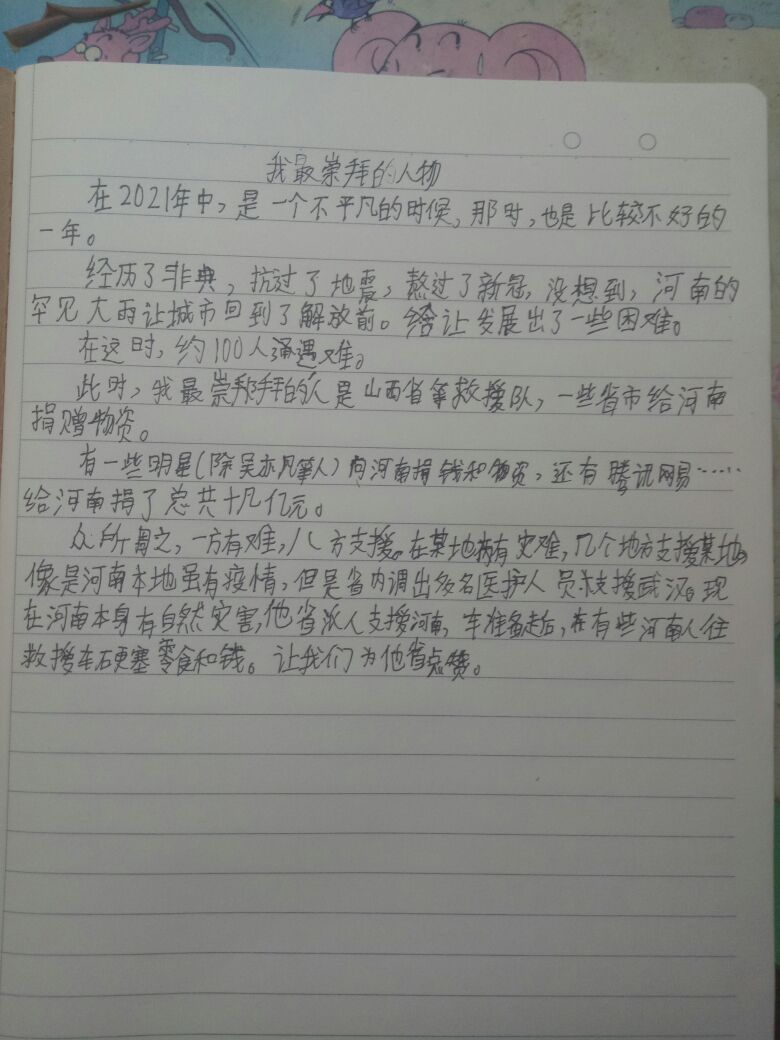 我最崇拜的人物
在2021年中,是一个不平凡的时候,那时,也是比较不好的
一年。
经历了非典,抗过了地震,熬过了新冠,没想到,河南的
罕见大雨让城市回到了解放前。给让发展出了一些困难。
在这时,约100人遇难。
此时,我最崇拜的人是山西省等救援队,一些省市给河南
捐赠物资。
有一些明星(除吴亦凡等人)向河南捐钱和物资,还有腾讯网易……
给河南捐了总共十几亿元。
众所周之,一方有难,八方支援。在某地有灾难,几个地方支援某地。
像是河南本地虽有疫情,但是省内调出多名医护人员支援武汉。现
在河南本身有自然灾害,他省派人支援河南,车准备走后,在有些河南人往
救援车硬塞零食和钱。让我们为他省点赞。